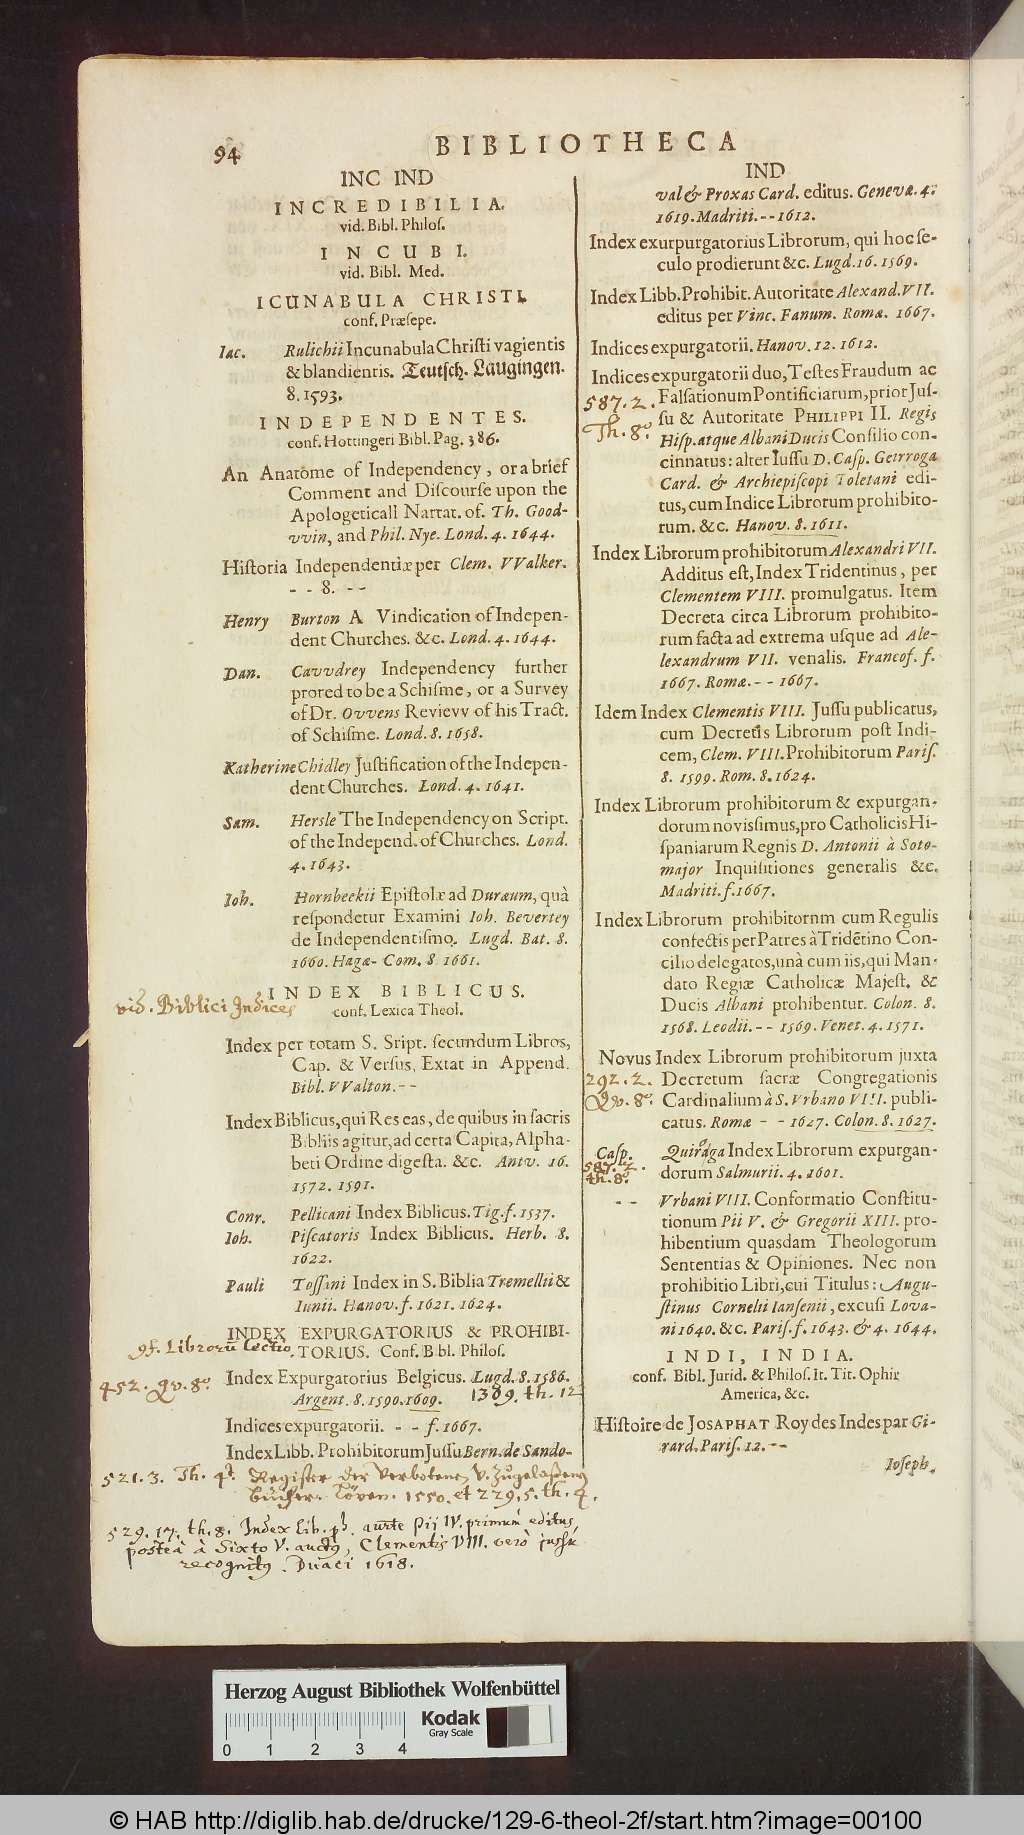 94
BIBLIOTHECA
INC IND
INCREDIBILIA.
vid. Bibl. Philoſ.
INCUBI.
vid. Bibl. Med.
ICUNABULA CHRISTI.
conf. Præſepe.
Iac. Rulichii Incunabula Chriſti vagientis
& blandientis. Teutſch. Laugingen.
8. 1593.
INDEPENDENTES.
conf. Hottingeri Bibl. Pag. 386.
An Anatome of Independency, or a brief
Comment and Diſcourſe upon the
Apologeticall Narrat. of. Th. Good-
vvin, and Phil. Nye. Lond. 4. 1644.
Hiſtoria Independentiæ per Clem. VValker.
- - 8. - -
Henry Burton A Vindication of Indepen-
dent Churches. &c. Lond. 4. 1644.
Dan. Cavvdrey Independency further
prored to be a Schiſme, or a Survey
of Dr. Ovvens Revievv of his Tract.
of Schiſme. Lond. 8. 1658.
Katherine Chidley Juſtification of the Indepen-
dent Churches. Lond. 4. 1641.
Sam. Hersle The Independency on Script.
of the Independ. of Churches. Lond.
4. 1643.
Ioh. Hornbeekii Epiſtolæ ad Duræum, quà
reſpondetur Examini Ioh. Bevertey
de Independentiſmo. Lugd. Bat. 8.
1660. Hagæ- Com. 8 1661.
INDEX BIBLICUS.
vid. Biblici Indices
conf. Lexica Theol.
Index per totam S. Sript. ſecundum Libros,
Cap. & Verſus, Extat in Append.
Bibl. VValton. - -
Index Biblicus, qui Res eas, de quibus in ſacris
Bibliis agitur, ad certa Capita, Alpha-
beti Ordine digeſta. &c. Antv. 16.
1572. 1591.
Conr. Pellicani Index Biblicus. Tig. f. 1537.
Ioh. Piſcatoris Index Biblicus. Herb. 8.
1622.
Pauli Toſſani Index in S. Biblia Tremellii &
Iunii. Hanov. f. 1621. 1624.
INDEX EXPURGATORIUS & PROHIBI-
TORIUS. Conf. Bibl. Philoſ.
cf. Librorū Lectio
Index Expurgatorius Belgicus. Lugd. 8. 1586.
452. Qv. 8º
Argent. 8. 1590. 1609. 1389. th. 12
Indices expurgatorii. - - f. 1667.
Index Libb. Prohibitorum Juſſu Bern. de Sando-
521. 3. Th. 4º. Regiſter der verbotenen v. zugelaßenen
bücher. Löven. 1550. et 229. 5. th. 4.
529. 17. th. 8. Index Lib. pꝶ. Pii IV. primum editus,
poſtea à Sixto V. auctus, Clementis VIII. vero juſſu
recognitus. Duaci 1618.
IND
val & Proxas Card. editus. Genevæ. 4.
1619. Madriti. - - 1612.
Index exurpurgatorius Librorum, qui hoc ſe-
culo prodierunt &c. Lugd. 16. 1569.
Index Libb. Prohibit. Autoritate Alexand. VII.
editus per Vinc. Fanum. Romæ. 1667.
Indices expurgatorii. Hanov. 12. 1612.
Indices expurgatorii duo, Teſtes Fraudum ac
587. 2. Falſationum Pontificiarum, prior Juſ-
Th. 8º. ſu & Autoritate PHILIPPI II. Regis
Hiſp. atque Albani Ducis Conſilio con-
cinnatus: alter Iuſſu D. Caſp. Getrroga
Card. & Archiepiſcopi Toletani edi-
tus, cum Indice Librorum prohibito-
rum. &c. Hanov. 8. 1611.
Index Librorum prohibitorum Alexandri VII.
Additus eſt, Index Tridentinus, per
Clementem VIII. promulgatus. Item
Decreta circa Librorum prohibito-
rum facta ad extrema uſque ad Ale-
lexandrum VII. venalis. Francof. f.
1667. Romæ. - - 1667.
Idem Index Clementis VIII. Juſſu publicatus,
cum Decretis Librorum poſt Indi-
cem, Clem. VIII. Prohibitorum Pariſ.
8. 1599. Rom. 8. 1624.
Index Librorum prohibitorum & expurgan-
dorum noviſſimus, pro Catholicis Hi-
ſpaniarum Regnis D. Antonii à Soto-
major Inquiſitiones generalis &c.
Madriti. f. 1667.
Index Librorum prohibitornm cum Regulis
confectis per Patres à Tridẽtino Con-
cilio delegatos, unà cum iis, qui Man-
dato Regiæ Catholicæ Majeſt. &
Ducis Albani prohibentur. Colon. 8.
1568. Leodii. - - 1569. Venet. 4. 1571.
Novus Index Librorum prohibitorum juxta
292. 2. Decretum ſacræ Congregationis
Qv. 8º. Cardinalium à S. Vrbano VIII. publi-
catus. Romæ - - 1627. Colon. 8. 1627.
Caſp. Quiroga Index Librorum expurgan-
587. 2.
th. 8º.
dorum Salmurii. 4. 1601.
- - Vrbani VIII. Conformatio Conſtitu-
tionum Pii V. & Gregorii XIII. pro-
hibentium quasdam Theologorum
Sententias & Opiniones. Nec non
prohibitio Libri, cui Titulus: Augu-
ſtinus Cornelii Ianſenii, excuſi Lova-
ni 1640. &c. Pariſ. f. 1643. & 4. 1644.
INDI, INDIA.
conf. Bibl. Jurid. & Philoſ. It. Tit. Ophir
America, &c.
Hiſtoire de JOSAPHAT Roy des Indes par Gi-
rard. Pariſ. 12. - -
Ioſeph.
Herzog August Bibliothek Wolfenbüttel
Kodak
Gray Scale
0 1 2 3 4
© HAB http://diglib.hab.de/drucke/129-6-theol-2f/start.htm?image=00100